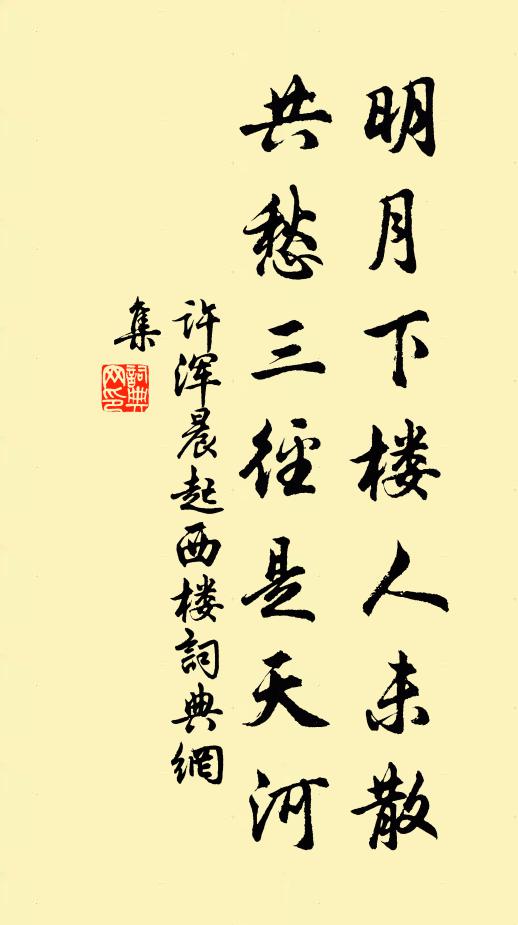 明月下楼人未散
共愁三径是天河
许浑晨起西楼詞典網
集
詞典网印